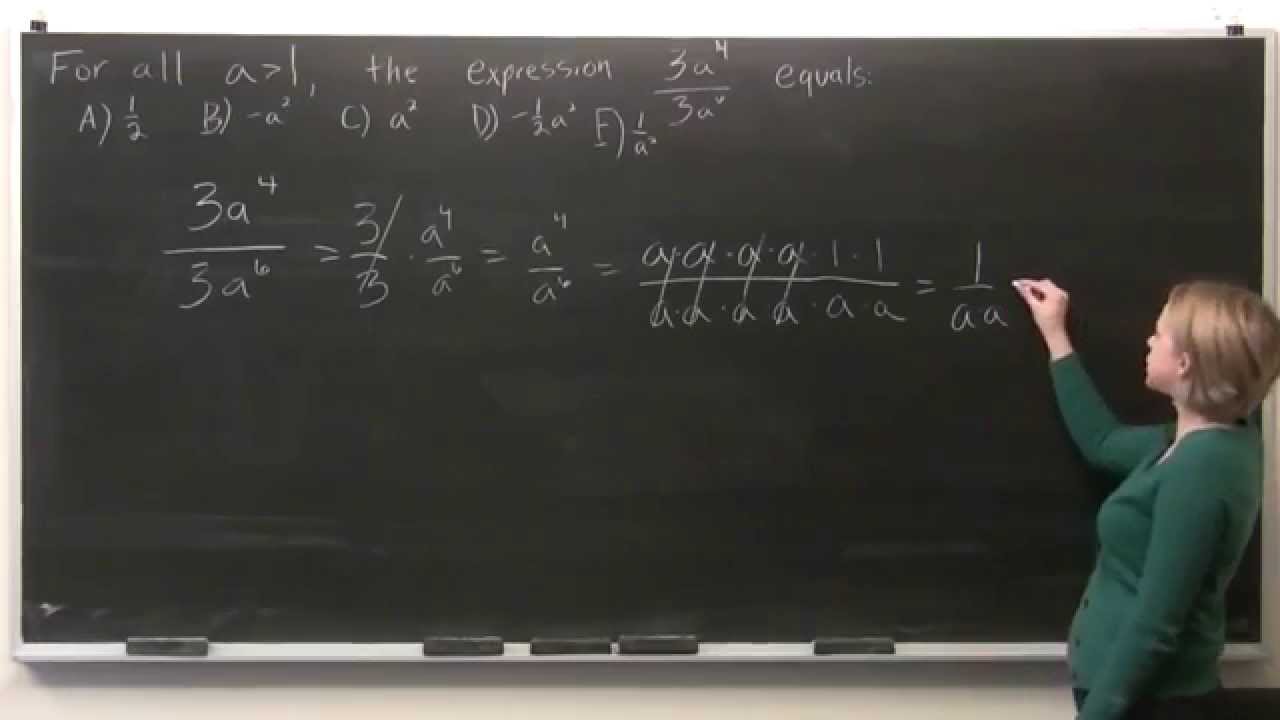 For all a>1, the expression 3a⁴/3a⁶ equals:
A) 1/2 B) -a² C) a² D) -1/2a² E) 1/a²
3a⁴/3a⁶ = 3/3 · a⁴/a⁶ = a⁴/a⁶ = a·a·a·a·1·1/a·a·a·a·a·a = 1/a·a